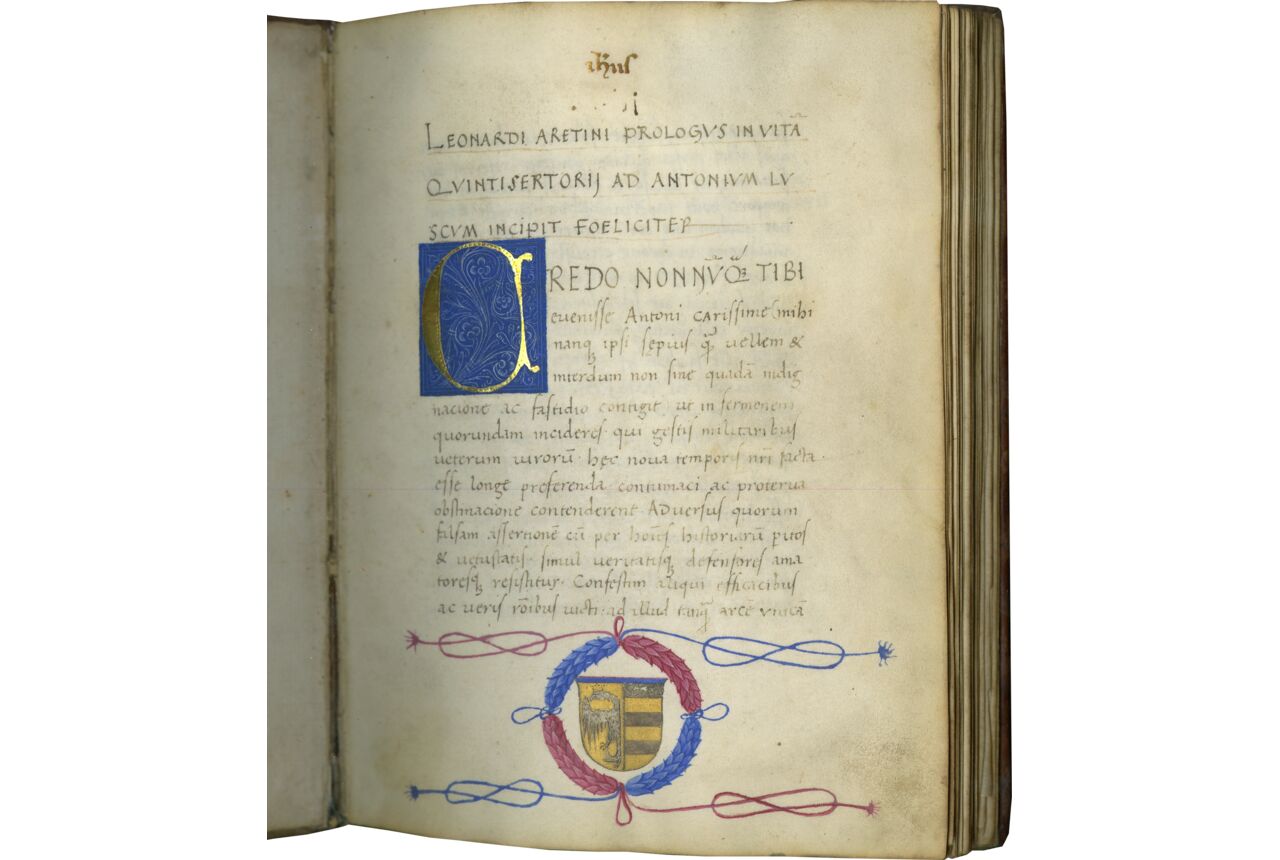 yħus
LEONARDI ARETINI PROLOGVS IN VITĀ
QVINTI SERTORIJ AD ANTONIVM LV
SCVM INCIPIT FOELICITER
CREDO NONNV̄Q̄ꝫ TIBI
evenisse Antoni carissime mihi
nanqꝫ ipsi sepius q̄ꝫ vellem &
interdum non sine quadā indig
nacione ac fastidio contigit ut in sermonem
quorundam incideres qui gestis militaribus
veterum virorū hęc nova temporis nr̄i facta
esse longe preferenda contumaci ac proterva
obstinacione contenderent Adversus quorum
falsam assertionē cū per hoīes historiarū pitos
& vetustatis simul veritatisqꝫ defensores ama
toresqꝫ resistitur Confestim aliqui efficacibus
ac veris rōibus victi ad illud tanq̄ꝫ arcē